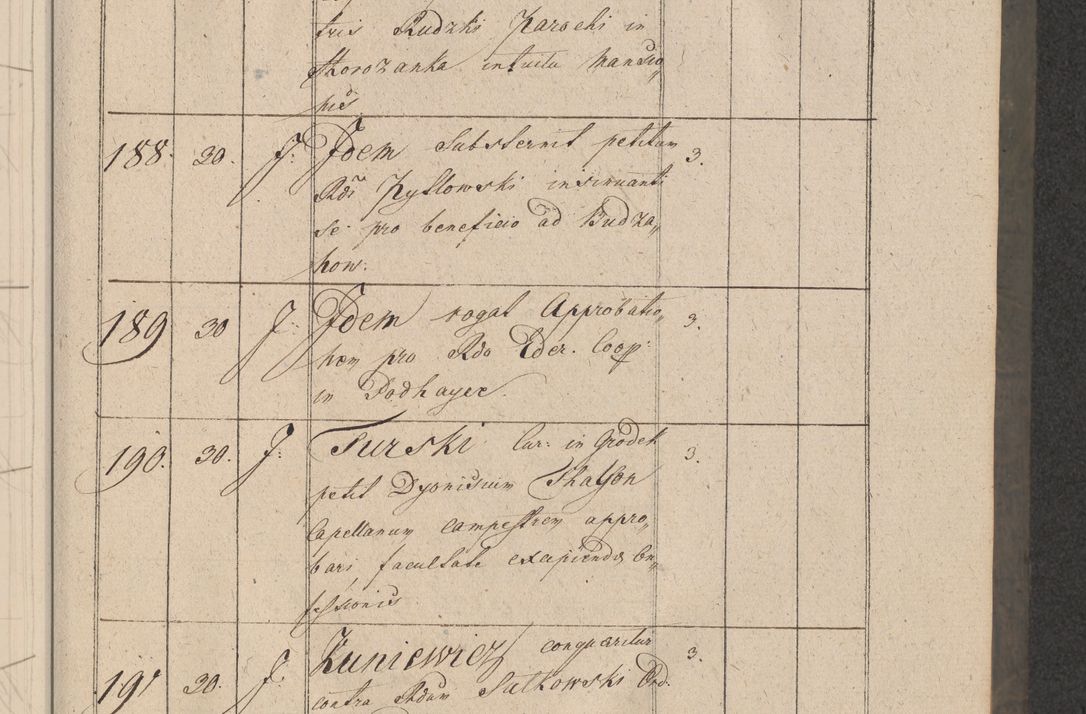 tris Rudzki Parochi in
Thorozanka intuitu Mansio„
nis
188. 30. J: Idem Substernit petitum 3.
Rdi Kytlowski insinuanti
se pro beneficio ad Budza„
now.
189 30 J: Idem rogat Approbatio„ 3.
nem pro Rdo Eder. Coop:
in Podhayce.
190. 30. J: Turski Cur: in Grodek 3.
petit Dyonisium
Capellanum campestrem appro„
bari facultate excipiendi Con„
fessionis
191 30. J. Zuniewicz conquaeritur 3.
contra Rdum Sutkowski Ord.